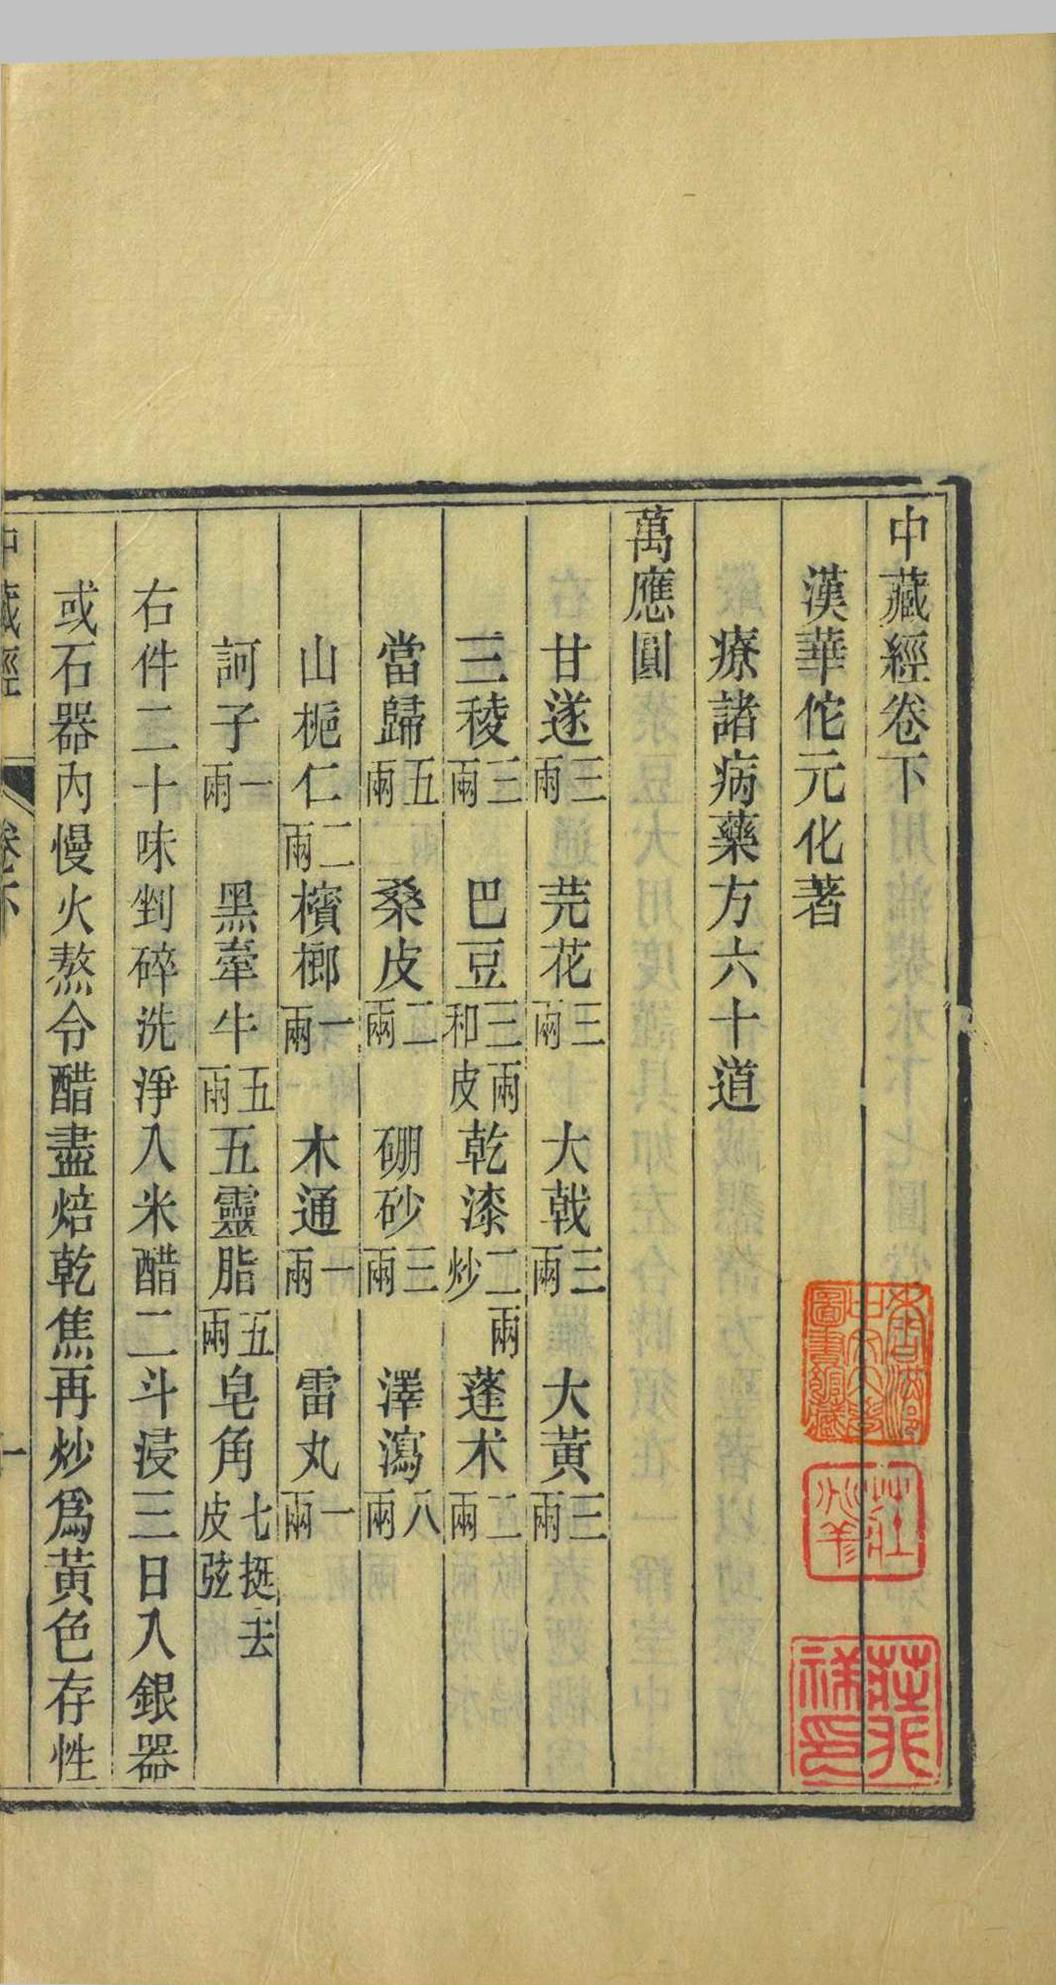 中藏經卷下
漢華佗元化著
療諸病藥方六十道
萬應圓
甘遂三兩 芫花三兩 大戟三兩 大黃三兩
三稜三兩 巴豆三兩和皮 乾漆二兩炒 蓬术二兩
當歸五兩 桑皮二兩 硼砂三兩 澤瀉八兩
山梔仁二兩 檳榔一兩 木通一兩 雷丸一兩
訶子一兩 黑牽牛五兩 五靈脂五兩 皂角七挺去皮弦
右件二十味剉碎洗淨入米醋二斗浸三日入銀器
或石器內慢火熬令醋盡焙乾焦再炒爲黃色存性
中藏經 卷下 一